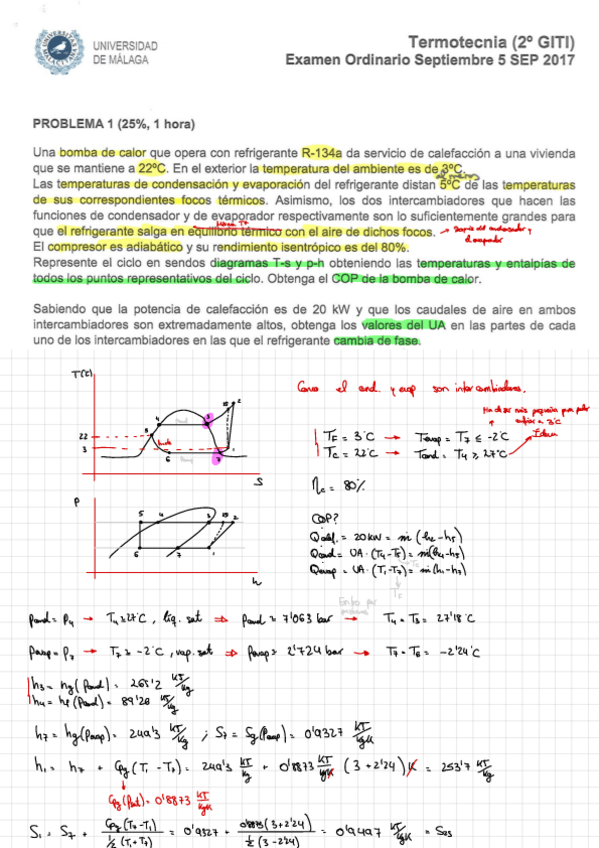 UNIVERSIDAD
DE MÁLAGA
Termotecnia (2º GITI)
Examen Ordinario Septiembre 5 SEP 2017
PROBLEMA 1 (25%, 1 hora)
Una bomba de calor que opera con refrigerante R-134a da servicio de calefacción a una vivienda
que se mantiene a 22ºC. En el exterior la temperatura del ambiente es de 3ºC.
Las temperaturas de condensación y evaporación del refrigerante distan 5ºC de las temperaturas
de sus correspondientes focos térmicos. Asimismo, los dos intercambiadores que hacen las
funciones de condensador y de evaporador respectivamente son lo suficientemente grandes para
que el refrigerante salga en equilibrio térmico con el aire de dichos focos.
El compresor es adiabático y su rendimiento isentrópico es del 80%.
Represente el ciclo en sendos diagramas T-s y p-h obteniendo las temperaturas y entalpías de
todos los puntos representativos del ciclo. Obtenga el COP de la bomba de calor.
Sabiendo que la potencia de calefacción es de 20 kW y que los caudales de aire en ambos
intercambiadores son extremadamente altos, obtenga los valores del UA en las partes de cada
uno de los intercambiadores en las que el refrigerante cambia de fase.
T(ºC)
22
3
S
P
h
Como el cond. y evap son intercambiadores.
T_F = 3ºC → T_evap = T7 ≤ -2ºC
T_C = 22ºC → T_cond = T4 ≥ 27ºC
η_c = 80%
COP?
Q_calef. = 20 kW = ṁ (h2 - h5)
Q_cond = UA · (T4 - T5) = ṁ(h4 - h5)
Q_evap = UA · (T1 - T7) = ṁ(h1 - h7)
P_cond = P4 → T4 ≈ 27ºC, liq. sat ⇒ P_cond ≈ 7'063 bar → T4 = T3 = 27'18ºC
P_evap = P7 → T7 ≈ -2ºC, vap. sat ⇒ P_evap ≈ 2'724 bar → T7 = T6 = -2'24ºC
h3 = hg(P_cond) = 265'2 kJ/kg
h4 = hf(P_cond) = 89'26 kJ/kg
h7 = hg(P_evap) = 249'3 kJ/kg ; S7 = Sg(P_evap) = 0'9327 kJ/kgK
h1 = h7 + Cpg(T1 - T7) = 249'3 kJ/kg + 0'8873 kJ/kgK (3 + 2'24) K = 253'7 kJ/kg
= 0'8873 kJ/kgK
S1 = S7 + Cpg(T1 - T7) / ½(T1 + T7) = 0'9327 + 0'8873(3 + 2'24) / ½(3 - 2'24) = 0'9497 kJ/kgK